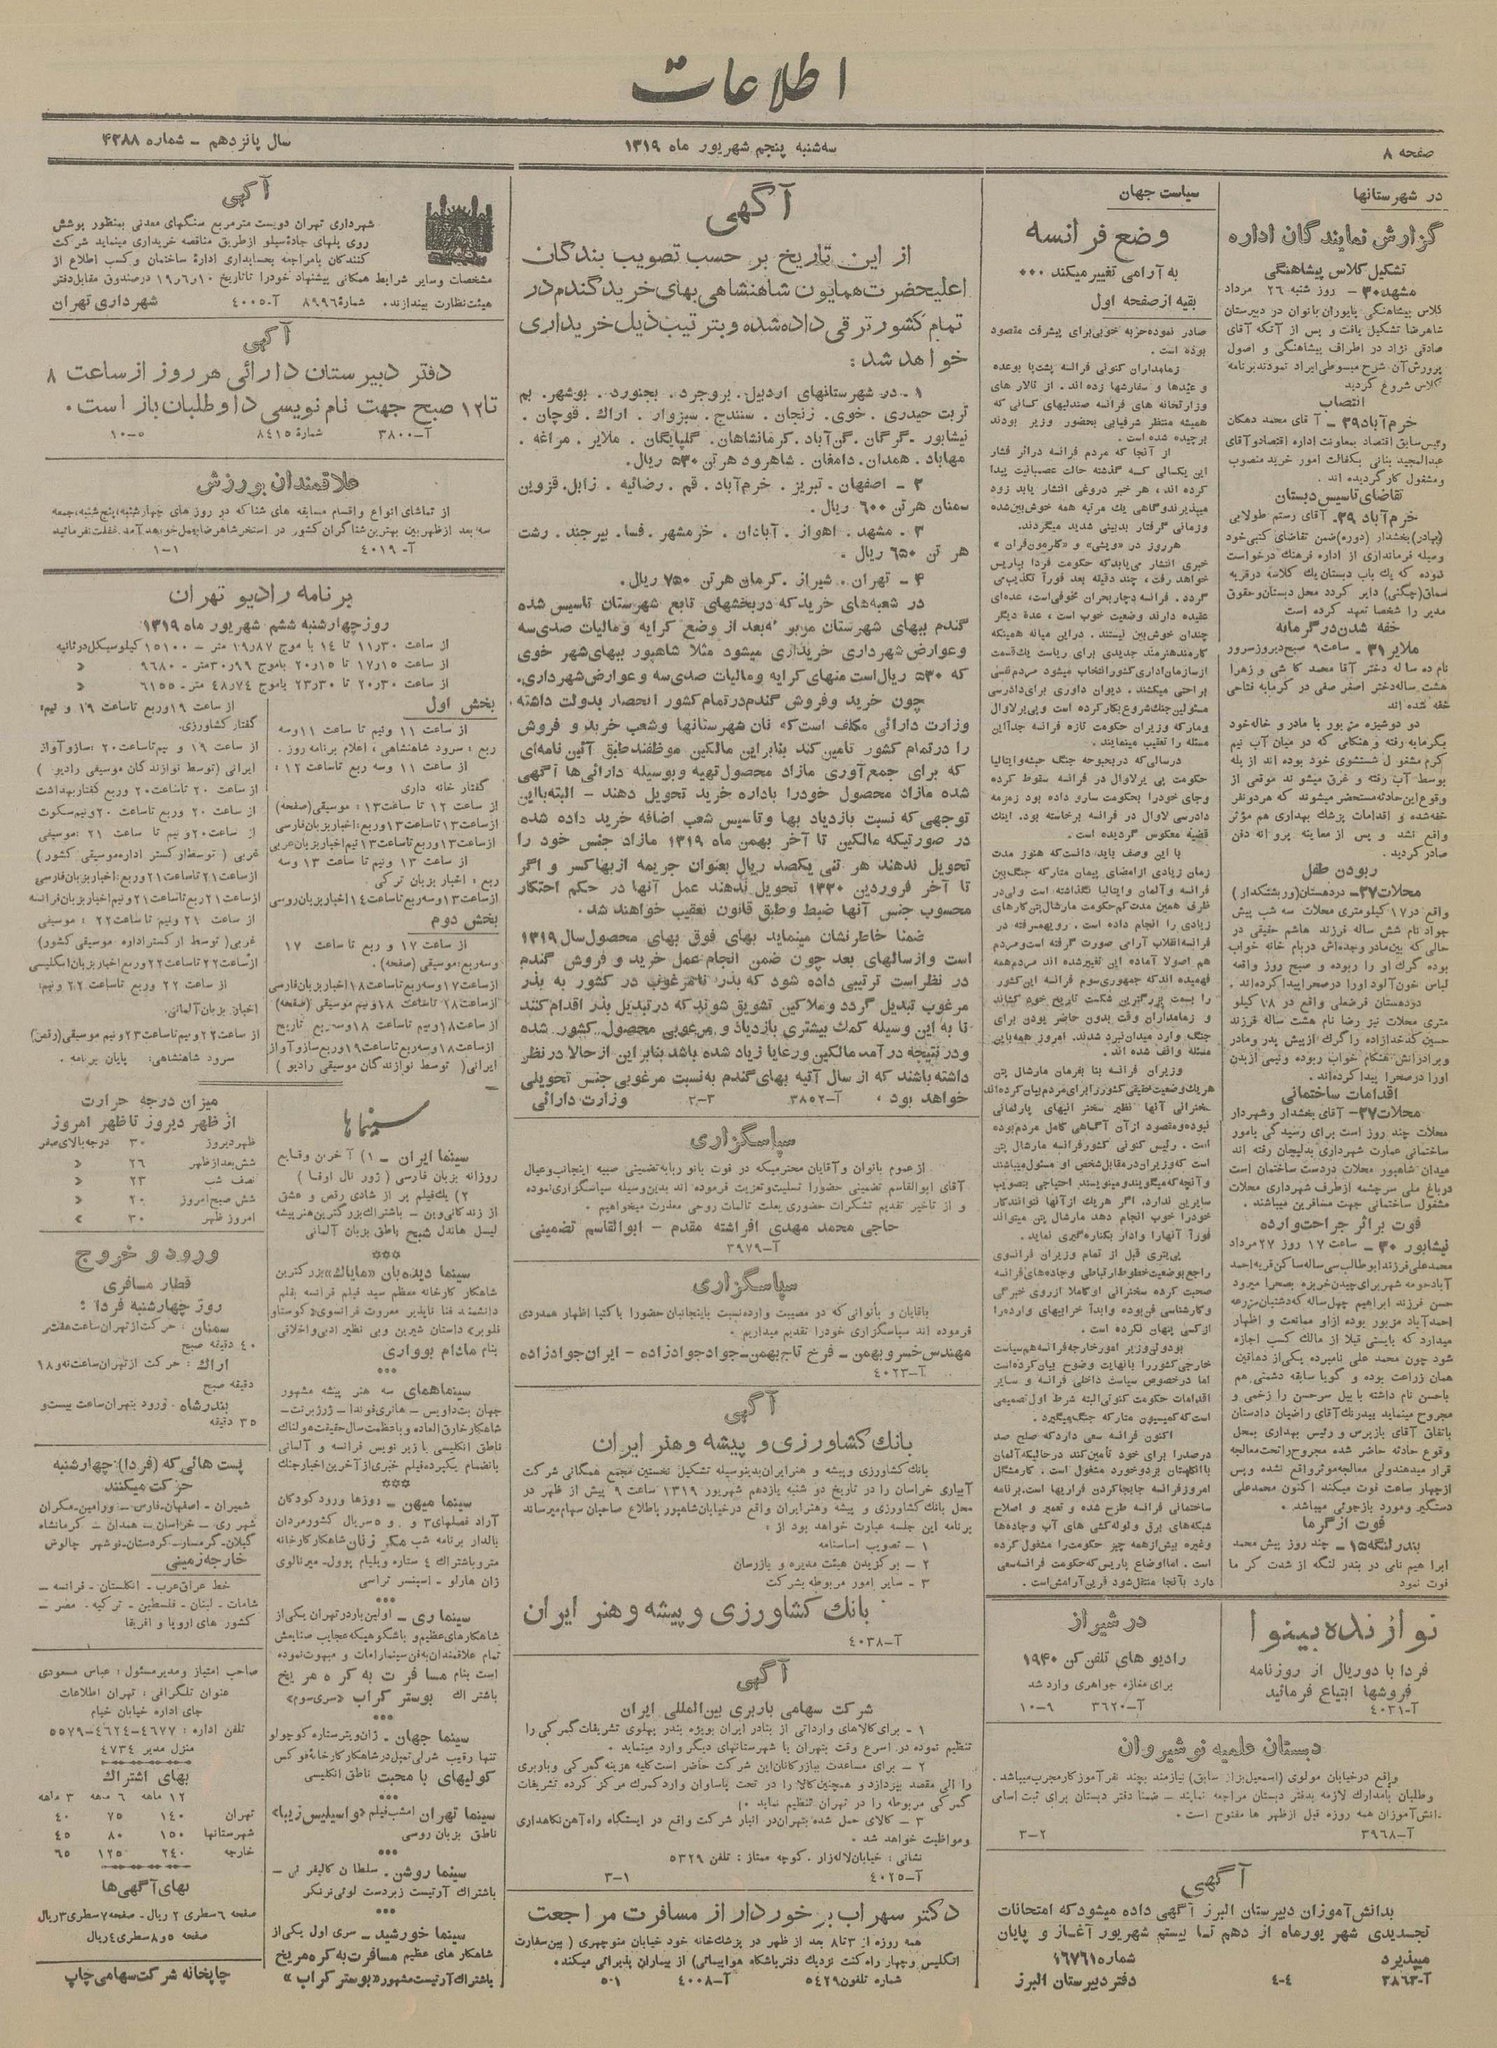 اطلاعات
صفحه ۸
سه‌شنبه پنجم شهریور ماه ۱۳۱۹
سال پانزدهم - شماره ۴۳۸۸
در شهرستانها
گزارش نمایندگان اداره
تشکیل کلاس پیشاهنگی
مشهد۳۰ - روز شنبه ۲۶ مرداد
کلاس پیشاهنگی یاوران بانوان در دبیرستان
شاهرضا تشکیل یافت و پس از آنکه آقای
صادقی نژاد در اطراف پیشاهنگی و اصول
پرورش آن شرح مبسوطی ایراد نمودند برنامه
کلاس شروع گردید
انتصاب
خرم‌آباد۲۹ - آقای محمد دهکان
رئیس سابق اقتصاد بمعاونت اداره اقتصاد و آقای
عبدالمجید بنانی بکفالت امور خرید منصوب
و مشغول کار گردیده اند .
تقاضای تاسیس دبستان
خرم‌آباد ۲۹ـ آقای رستم طولابی
(بهادر) بخشدار (دوره) ضمن تقاضای کتبی خود
بوسیله فرمانداری از اداره فرهنگ درخواست
نموده که یك باب دبستان یك کلاسه در قریه
سماق (چگنی) دایر گردد محل دبستان و حقوق
مدیر را شخصا تعهد کرده است
خفه شدن در گرمابه
ملایر۳۱ - ساعت۹ صبح دیروز سرور
نام ده ساله دختر آقا محمد کاشی و زهرا
هشت ساله دختر اصغر صفی در گرمابه فتاحی
خفه شده اند
دو دوشیزه مزبور با مادر و خاله خود
بگرمابه رفته و هنگامی که در میان آب نیم
گرم مشغول شستشوی خود بوده اند از پله
بوسط آب رفته و غرق میشوند موقعی از
وقوع این حادثه مستحضر میشوند که هر دو نفر
خفه شده و اقدامات پزشك بهداری هم مؤثر
واقع نشد و پس از معاینه پروانه دفن
صادر گردید .
ربودن طفل
واقع در۱۷ کیلومتری محلات سه شب پیش
جواد نام شش ساله فرزند هاشم حقیقی در
حالی که بین مادر و جده‌اش در بام خانه خواب
بوده گرك او را ربوده و صبح روز واقعه
لباس خون‌آلود او را در صحرا پیدا کرده‌اند .
متری محلات نیز رضا نام هشت ساله فرزند
حسین کدخدازاده را گرك از پیش پدر و مادر
و برادرانش هنگام خواب ربوده و نیمی از بدن
او را در صحرا پیدا کرده‌اند .
اقدامات ساختمانی
محلات۲۷ - آقای بخشدار و شهردار
محلات چند روز است برای رسیدگی بامور
ساختمانی عمارت شهرداری بدلیجان رفته اند
میدان شاهپور محلات در دست ساختمان است
در باغ ملی سرچشمه از طرف شهرداری محلات
مشغول ساختمانی جهت مسافرین میباشند .
فوت براثر جراحت وارده
نیشابور ۳۰ - ساعت ۱۷ روز ۲۷ مرداد
محمدعلی فرزند ابوطالب سی ساله ساکن قریه احمد
آباد حومه شهر برای چیدن خربزه بصحرا میرود
حسن فرزند ابراهیم چهل ساله که دشتبان مزرعه
احمدآباد مزبور بوده از او ممانعت و اظهار
میدارد که بایستی قبلا از مالك کسب اجازه
شود چون محمد علی نامبرده یکی از دهاقین
همان زراعت بوده و گویا سابقه دشمنی هم
با حسن نام داشته با بیل سر حسن را زخمی و
مجروح مینماید بیدرنك آقای راضیان دادستان
باتفاق آقای بازپرس و رئیس بهداری بمحل
وقوع حادثه حاضر شده مجروح را تحت معالجه
قرار میدهند ولی معالجه موثر واقع نشده و پس
از چهار ساعت فوت میکند اکنون محمدعلی
دستگیر و مورد بازجوئی میباشد .
فوت از گرما
بندر لنگه۱۵ - چند روز پیش محمد
ابراهیم نامی در بندر لنگه از شدت گرما
فوت نمود
سیاست جهان
وضع فرانسه
به آرامی تغییر میکند ...
بقیه از صفحه اول
صادر نموده حربه خوبی برای پیشرفت مقصود
بوده است .
زمامداران کنونی فرانسه پشت پا بوعده
و عیدها و سفارشها زده اند . از تالار های
وزارتخانه های فرانسه صندلیهای کسانی که
همیشه منتظر شرفیابی بحضور وزیر بودند
برچیده شده است .
از آنجا که مردم فرانسه در اثر فشار
این یکسالی که گذشته حالت عصبانیت پیدا
کرده اند ، هر خبر دروغی انتشار یابد زود
میپذیرند و گاهی یك مرتبه همه خوش‌بین شده
و زمانی گرفتار بدبینی شدید میگردند .
هر روز در «ویشی» و «کلرمون‌فران»
خبری انتشار می‌یابد که حکومت فردا بپاریس
خواهد رفت ، چند دقیقه بعد فوراً تکذیب می
گردد . فرانسه دچار بحران مخوفی است ، عده‌ای
عقیده دارند وضعیت خوب است ، عده دیگر
چندان خوش‌بین نیستند . در این میانه همینکه
کارمند هنرمند جدیدی برای ریاست یك قسمت
از سازمان اداری کشور انتخاب میشود مردم نفسی
براحتی میکشند . دیوان داوری برای دادرسی
مسئولین جنك شروع بکار کرده است و پی‌یر لاوال
و مارکه وزیران حکومت تازه فرانسه جداً این
مسئله را تعقیب مینمایند .
در سالی که در بحبوحه جنگ حبشه و ایتالیا
حکومت پی یر لاوال در فرانسه سقوط کرده
وجای خود را بحکومت سارو داده بود زمزمه
دادرسی لاوال در فرانسه برخاسته بود . اینك
قضیه معکوس گردیده است .
با این وصف باید دانست که هنوز مدت
زمان زیادی از امضای پیمان متارکه جنگ بین
فرانسه و آلمان و ایتالیا نگذاشته است ولی در
ظرف همین مدت کم حکومت مارشال پتن کارهای
زیادی را انجام داده است . رویهمرفته در
فرانسه انقلاب آرامی صورت گرفته است و مردم
هم اصولا آماده این تغییر شده اند مردم همه
فهمیده اند که جمهوری سوم فرانسه این کشور
را بسمت بزرگترین شکست تاریخ خود کشاند
و زمامداران وقت بدون حاضر بودن برای
جنگ وارد میدان نبرد شدند . امروز همه باین
مسئله واقف شده اند .
وزیران فرانسه بنا بفرمان مارشال پتن
هریك وضعیت حقیقی کشور را برای مردم بیان کرده‌اند
سخنرانی آنها نظیر سخنرانیهای پارلمانی
نبوده و مقصود از آن آگاهی کامل مردم بوده
است . رئیس کنونی کشور فرانسه مارشال پتن
است که وزیران در مقابل شخص او مسئول میباشند
و آنچه که میگویند و مینویسند احتیاجی بتصویب
سایرین ندارد ، اگر هریك از آنها نتوانند کار
خود را خوب انجام دهد مارشال پتن میتواند
فوراً آنها را وادار بکناره‌گیری نماید .
پی‌یتری قبل از تمام وزیران فرانسوی
راجع بوضعیت خطوط ارتباطی و جاده‌های فرانسه
صحبت کرده سخنرانی او کاملا از روی خبرگی
و کارشناسی فنی بوده و ابداً خرابیهای وارده را
از کسی پنهان نکرده است .
بودوئن وزیر امور خارجه فرانسه هم سیاست
خارجی کشور را بانهایت وضوح بیان کرده است
اما در خصوص سیاست داخلی فرانسه و سایر
اقدامات حکومت کنونی البته شرط اول تصمیمی
است که کمیسیون متارکه جنگ میگیرد .
اکنون فرانسه سعی دارد که صلح صد
در صد را برای خود تأمین کند در حالیکه آلمان
با انگلستان بزد و خورد مشغول است . کار مشگل
امروز فرانسه جابجا کردن فراریها است . برنامه
ساختمانی فرانسه طرح شده و تعمیر و اصلاح
شبکه‌های برق و لوله‌کشی های آب و جاده‌ها
وغیره بیش از همه چیز حکومت را مشغول کرده
است . اما اوضاع پاریس که حکومت فرانسه سعی
دارد بآنجا منتقل شود قرین آرامش است .
نوازنده بینوا
فردا با دو ریال از روزنامه
فروشها ابتیاع فرمائید
آ-۴۰۳۱
در شیراز
رادیو های تلفن‌کن ۱۹۴۰
برای مغازه جواهری وارد شد
آ-۳۶۲۰ ۹-۱۰
دبستان علمیه نوشیروان
واقع در خیابان مولوی (اسمعیل بزاز سابق) نیازمند بچند نفر آموزگار مجرب میباشد .
وطلبان بامدارك لازمه بدفتر دبستان مراجعه نمایند - ضمنا دفتر دبستان برای ثبت اسامی
دانش‌آموزان همه روزه قبل از ظهر ها مفتوح است .
آ-۳۹۶۸ ۲-۳
آگهی
بدانش‌آموزان دبیرستان البرز آگهی داده میشود که امتحانات
تجدیدی شهریورماه از دهم تا بیستم شهریور آغاز و پایان
میپذیرد شماره۱۶۷۶۱
آ-۳۸۶۳ ۴-۴ دفتر دبیرستان البرز
آگهی
از این تاریخ بر حسب تصویب بندگان
اعلیحضرت همایون شاهنشاهی بهای خرید گندم در
تمام کشور ترقی داده شده و بترتیب ذیل خریداری
خواهد شد :
۱ - در شهرستانهای اردبیل . بروجرد . بجنورد . بوشهر . بم
تربت حیدری . خوی . زنجان . سنندج . سبزوار . اراك . قوچان .
نیشابور - گرگان . گن‌آباد . کرمانشاهان . گلپایگان . ملایر . مراغه .
مهاباد . همدان . دامغان . شاهرود هر تن ۵۳۰ ریال .
۲ - اصفهان . تبریز . خرم‌آباد . قم . رضائیه . زابل . قزوین
سمنان هر تن ۶۰۰ ریال .
۳ . مشهد . اهواز . آبادان . خرمشهر . فسا . بیرجند . رشت
هر تن ۶۵۰ ریال .
۴ - تهران . شیراز . کرمان هر تن ۷۵۰ ریال .
در شعبه‌های خرید که در بخشهای تابع شهرستان تاسیس شده
گندم ببهای شهرستان مزبور که بعد از وضع کرایه و مالیات صدی‌سه
وعوارض شهرداری خریداری میشود مثلا شاهپور ببهای شهر خوی
که ۵۳۰ ریال است منهای کرایه و مالیات صدی‌سه و عوارض شهرداری .
چون خرید و فروش گندم در تمام کشور انحصار بدولت داشته
وزارت دارائی مکلف است که نان شهرستانها وشعب خرید و فروش
را در تمام کشور تأمین کند بنابر این مالکین موظفند طبق آئین نامه‌ای
که برای جمع‌آوری مازاد محصول تهیه و بوسیله دارائی‌ها آگهی
شده مازاد محصول خود را باداره خرید تحویل دهند - البته با این
توجهی که نسبت بازدیاد بها و تاسیس شعب اضافه خرید داده شده
در صورتیکه مالکین تا آخر بهمن ماه ۱۳۱۹ مازاد جنس خود را
تحویل ندهند هر تنی یکصد ریال بعنوان جریمه از بها کسر و اگر
تا آخر فروردین ۱۳۲۰ تحویل ندهند عمل آنها در حکم احتکار
محسوب جنس آنها ضبط و طبق قانون تعقیب خواهند شد .
ضمنا خاطرنشان مینماید بهای فوق بهای محصول سال ۱۳۱۹
است و از سالهای بعد چون ضمن انجام عمل خرید و فروش گندم
در نظر است ترتیبی داده شود که بذر نامرغوب در کشور به بذر
مرغوب تبدیل گردد و ملاکین تشویق شوند که در تبدیل بذر اقدام کنند
تا به این وسیله کمك بیشتری بازدیاد و مرغوبی محصول کشور شده
ودر نتیجه درآمد مالکین و رعایا زیاد شده باشد بنابر این از حالا در نظر
داشته باشند که از سال آتیه بهای گندم به نسبت مرغوبی جنس تحویلی
خواهد بود . آ-۳۸۵۲ ۳-۲ وزارت دارائی
سپاسگزاری
از عموم بانوان و آقایان محترمیکه در فوت بانو ربابه تضمینی صبیه اینجانب وعیال
آقای ابوالقاسم تضمینی حضورا تسلیت و تعزیت فرموده اند بدین‌وسیله سپاسگزاری نموده
و از تاخیر تقدیم تشکرات حضوری بعلت تالمات روحی معذرت میخواهیم .
حاجی محمد مهدی افراشته مقدم - ابوالقاسم تضمینی
آ-۳۹۷۹
سپاسگزاری
باقایان و بانوانی که در مصیبت وارده نسبت باینجانبان حضورا یا کتبا اظهار همدردی
فرموده اند سپاسگزاری خود را تقدیم میداریم .
مهندس خسرو بهمن - فرخ تاج بهمن - جواد جوادزاده - ایران جوادزاده
آ-۴۰۲۳
آگهی
بانك کشاورزی و پیشه وهنر ایران
بانك کشاورزی و پیشه و هنر ایران بدینوسیله تشکیل نخستین مجمع همگانی شرکت
آبیاری خراسان را در تاریخ دو شنبه یازدهم شهریور ۱۳۱۹ ساعت ۹ پیش از ظهر در
محل بانك کشاورزی و پیشه وهنر ایران واقع در خیابان شاهپور باطلاع صاحبان سهام میرساند
برنامه این جلسه عبارت خواهد بود از :
۱ - تصویب اساسنامه
۲ - برگزیدن هیئت مدیره و بازرسان
۳ - سایر امور مربوطه بشرکت
بانك کشاورزی و پیشه وهنر ایران
آ-۴۰۳۸
آگهی
شرکت سهامی باربری بین‌المللی ایران
۱ - برای کالاهای وارداتی از بنادر ایران بویژه بندر پهلوی تشریفات گمرکی را
تنظیم نموده در اسرع وقت بتهران یا شهرستانهای دیگر وارد مینماید .
۲ - برای مساعدت ببازرگانان این شرکت حاضر است کلیه هزینه گمرکی و باربری
را الی مقصد بپردازد و همچنین کالا را در تحت پاساوان وارد گمرك مرکز کرده تشریفات
گمرکی مربوطه را در تهران تنظیم نماید .
۳ - کالای حمل شده بتهران در انبار شرکت واقع در ایستگاه راه‌آهن نگاهداری
ومواظبت خواهد شد .
نشانی : خیابان لاله‌زار . کوچه ممتاز : تلفن ۵۳۲۹
آ-۴۰۲۵ ۱-۳
دکتر سهراب برخوردار از مسافرت مراجعت
همه روزه از ۳تا۸ بعد از ظهر در پزشك‌خانه خود خیابان منوچهری (بین سفارت
انگلیس وچهار راه کنت نزدیك دفتر باشگاه هواپیمائی) از بیماران پذیرائی میکند .
شماره تلفون۵۴۲۹ آ-۴۰۰۸ ۱-۵
آگهی
شهرداری تهران دویست مترمربع سنگهای معدنی بمنظور پوشش
روی پلهای جاده سیلو از طریق مناقصه خریداری مینماید شرکت
کنندگان بامراجعه بحسابداری اداره ساختمان و کسب اطلاع از
مشخصات وسایر شرایط همگانی پیشنهاد خود را تاتاریخ ۱۹٫۶٫۱۰ در صندوق مقابل دفتر
هیئت نظارت بیندازند . شماره۸۹۹۶ آ-۴۰۰۵ شهرداری تهران
آگهی
دفتر دبیرستان دارائی هر روز از ساعت ۸
تا۱۲ صبح جهت نام نویسی داوطلبان باز است .
آ-۳۸۰۰ شماره ۸۴۱۵ ۵-۱۰
علاقمندان بورزش
از تماشای انواع واقسام مسابقه های شنا که در روز های چهارشنبه،پنج‌شنبه،جمعه
سه بعد از ظهر بین بهترین شناگران کشور در استخر شاهرضا بعمل خواهد آمد غفلت نفرمائید
آ-۴۰۱۹ ۱-۱
برنامه رادیو تهران
روز چهارشنبه ششم شهریور ماه ۱۳۱۹
از ساعت ۱۱٫۳۰ تا ۱۴ با موج ۱۹٫۸۷ متر - ۱۵۱۰۰ کیلوسیکل در ثانیه
از ساعت ۱۷٫۱۵ تا ۲۰٫۱۵ باموج ۳۰٫۹۹متر - ۹۶۸۰ «
از ساعت ۲۰٫۳۰ تا ۲۳٫۳۰ باموج ۴۸٫۷۴ متر - ۶۱۵۵ «
بخش اول
از ساعت ۱۱ ونیم تا ساعت ۱۱وسه
ربع : سرود شاهنشاهی ، اعلام برنامه روز .
از ساعت ۱۱ وسه ربع تاساعت ۱۲ :
گفتار خانه داری
از ساعت ۱۲ تا ساعت۱۳ : موسیقی (صفحه)
از ساعت ۱۳ تاساعت ۱۳وربع:اخبار بزبان فارسی
از ساعت۱۳وربع تا ساعت۱۳ نیم اخبار بزبان عربی
از ساعت ۱۳ ونیم تا ساعت ۱۳ وسه
ربع : اخبار بزبان ترکی
از ساعت۱۳وسه ربع تاساعت۱۴اخبار بزبان روسی
بخش دوم
از ساعت ۱۷ و ربع تا ساعت ۱۷
وسه ربع:موسیقی (صفحه) .
از ساعت۱۷وسه ربع تاساعت۱۸اخبار بزبان فارسی
از ساعت ۱۸ تاساعت ۱۸ ونیم موسیقی (صفحه)
از ساعت۱۸ونیم تاساعت ۱۸وسه ربع تاریخ
از ساعت ۱۸وسه ربع تاساعت۱۹وربع سازو آواز
ایرانی ( توسط نوازندگان موسیقی رادیو )
از ساعت ۱۹وربع تاساعت ۱۹ و نیم:
گفتار کشاورزی.
از ساعت ۱۹ و نیم تاساعت ۲۰ :سازوآواز
ایرانی (توسط نوازندگان موسیقی رادیو )
از ساعت ۲۰ تاساعت ۲۰ وربع گفتار بهداشت
از ساعت ۲۰ وربع تاساعت ۲۰ونیم سکوت
از ساعت۲۰ونیم تا ساعت ۲۱ :موسیقی
غربی ( توسط ارکستر اداره موسیقی کشور )
از ساعت۲۱ تاساعت ۲۱وربع:اخبار بزبان فارسی
از ساعت۲۱ربع تاساعت۲۱ونیم اخبار بزبان فرانسه
از ساعت ۲۱ ونیم تاساعت۲۲ : موسیقی
غربی( توسط ارکستر اداره موسیقی کشور)
از ساعت۲۲ تاساعت ۲۲وربع اخبار بزبان انگلیسی
از ساعت ۲۲ وربع تاساعت ۲۲ ونیم:
اخبار بزبان آلمانی.
از ساعت۲۲ونیم تاساعت۲۳ونیم موسیقی(رقص)
سرود شاهنشاهی: پایان برنامه .
سینماها
سینما ایران - ۱) آخرین وقایع
روزانه بزبان فارسی ( ژورنال اوفا )
۲) یك فیلم پر از شادی رقص و عشق
از زندگانی وین - باشتراك بزرگترین هنرپیشه
لیسل هاندل شبح ناطق بزبان آلمانی
***
سینما دیده‌بان «مایاك» بزرگترین
شاهکار کارخانه معظم سید فیلم فرانسه بقلم
دانشمند فنا ناپذیر معروف فرانسوی «گوستاو
فلوبر» داستان شیرین وبی نظیر ادبی و اخلاقی
بنام مادام بوواری
***
سینماهمای سه هنر پیشه مشهور
جهان بت‌داویس - هانری‌فوندا - ژرژبرنت-
شاهکار خارق‌العاده و با عظمت سال حقیقت هولناك
ناطق انگلیسی با زیر نویس فرانسه و آلمانی
بانضمام یکپرده فیلم خبری از آخرین اخبار جنك
***
سینما میهن - روزها ورود کودکان
آزاد فصلهای۳ و . و ۵ سریال کشور مردان
بالدار برنامه شب مکر زنان شاهکار کارخانه
مترو باشتراك ۴ ستاره ویلیام پوول - میرنالوی
ژان هارلو - اسپنسر تراسی
***
سینما ری - اولین بار در تهران یکی از
شاهکارهای عظیم و باشکوهیکه عجایب صنایعش
تمام علاقمندان به فن سینما را مات و مبهوت نموده
است بنام مسافرت به کره مریخ
باشتراك بوستر کراب «سری سوم»
***
سینما جهان - زان ویتر ستاره کوچولو
تنها رقیب شرلی تمپل در شاهکار کارخانه فوکس
کولیهای با محبت ناطق انگلیسی
سینما تهران امشب فیلم «واسیلیس زیبا»
ناطق بزبان روسی
***
سینما روشن - سلطان کالیفرنی -
باشتراك آرتیست زبردست لوئی ترنکر
***
سینما خورشید - سری اول یکی از
شاهکار های عظیم مسافرت به کره مریخ
باشتراك آرتیست مشهور «بوستر کراب»
میزان درجه حرارت
از ظهر دیروز تا ظهر امروز
ظهر دیروز ۳۰ درجه بالای صفر
شش بعد از ظهر ۲۶ «
نصف شب ۲۳ «
شش صبح امروز ۲۰ «
امروز ظهر ۳۰ «
ورود و خروج
قطار مسافری
روز چهارشنبه فردا :
سمنان : حرکت از تهران ساعت هفت و
۴۰ دقیقه صبح
اراك : حرکت از تهران ساعت نه و ۱۸
دقیقه صبح
بندرشاه . ورود بتهران ساعت بیست و
۳۵ دقیقه
پست هائی که (فردا) : چهارشنبه
حرکت میکنند
شمیران - اصفهان - فارس - ورامین - مکران
شهر ری - خراسان - همدان - کرمانشاه
گیلان - گرمسار - کردستان - نوشهر چالوس
خارجه زمینی :
خط عراق عرب - انگلستان - فرانسه -
شامات - لبنان - فلسطین - ترکیه - مصر -
کشور های اروپا و افریقا
صاحب امتیاز و مدیر مسئول : عباس مسعودی
عنوان تلگرافی : تهران اطلاعات
جای اداره خیابان خیام
تلفن اداره : ۴۶۷۷-۴۶۲۴-۵۵۷۹
منزل مدیر ۴۷۳۴
بهای اشتراك
۱۲ ماهه ۶ مهه ۳ ماهه
تهران ۱۴۰ ۷۵ ۴۰
شهرستانها ۱۵۰ ۸۰ ۴۵
خارجه ۲۴۰ ۱۲۵ ۶۵
بهای آگهی‌ها
صفحه ۶سطری ۲ ریال - صفحه۷ سطری۳ریال
صفحه ۵و۸سطری۴ریال
چاپخانه شرکت سهامی چاپ